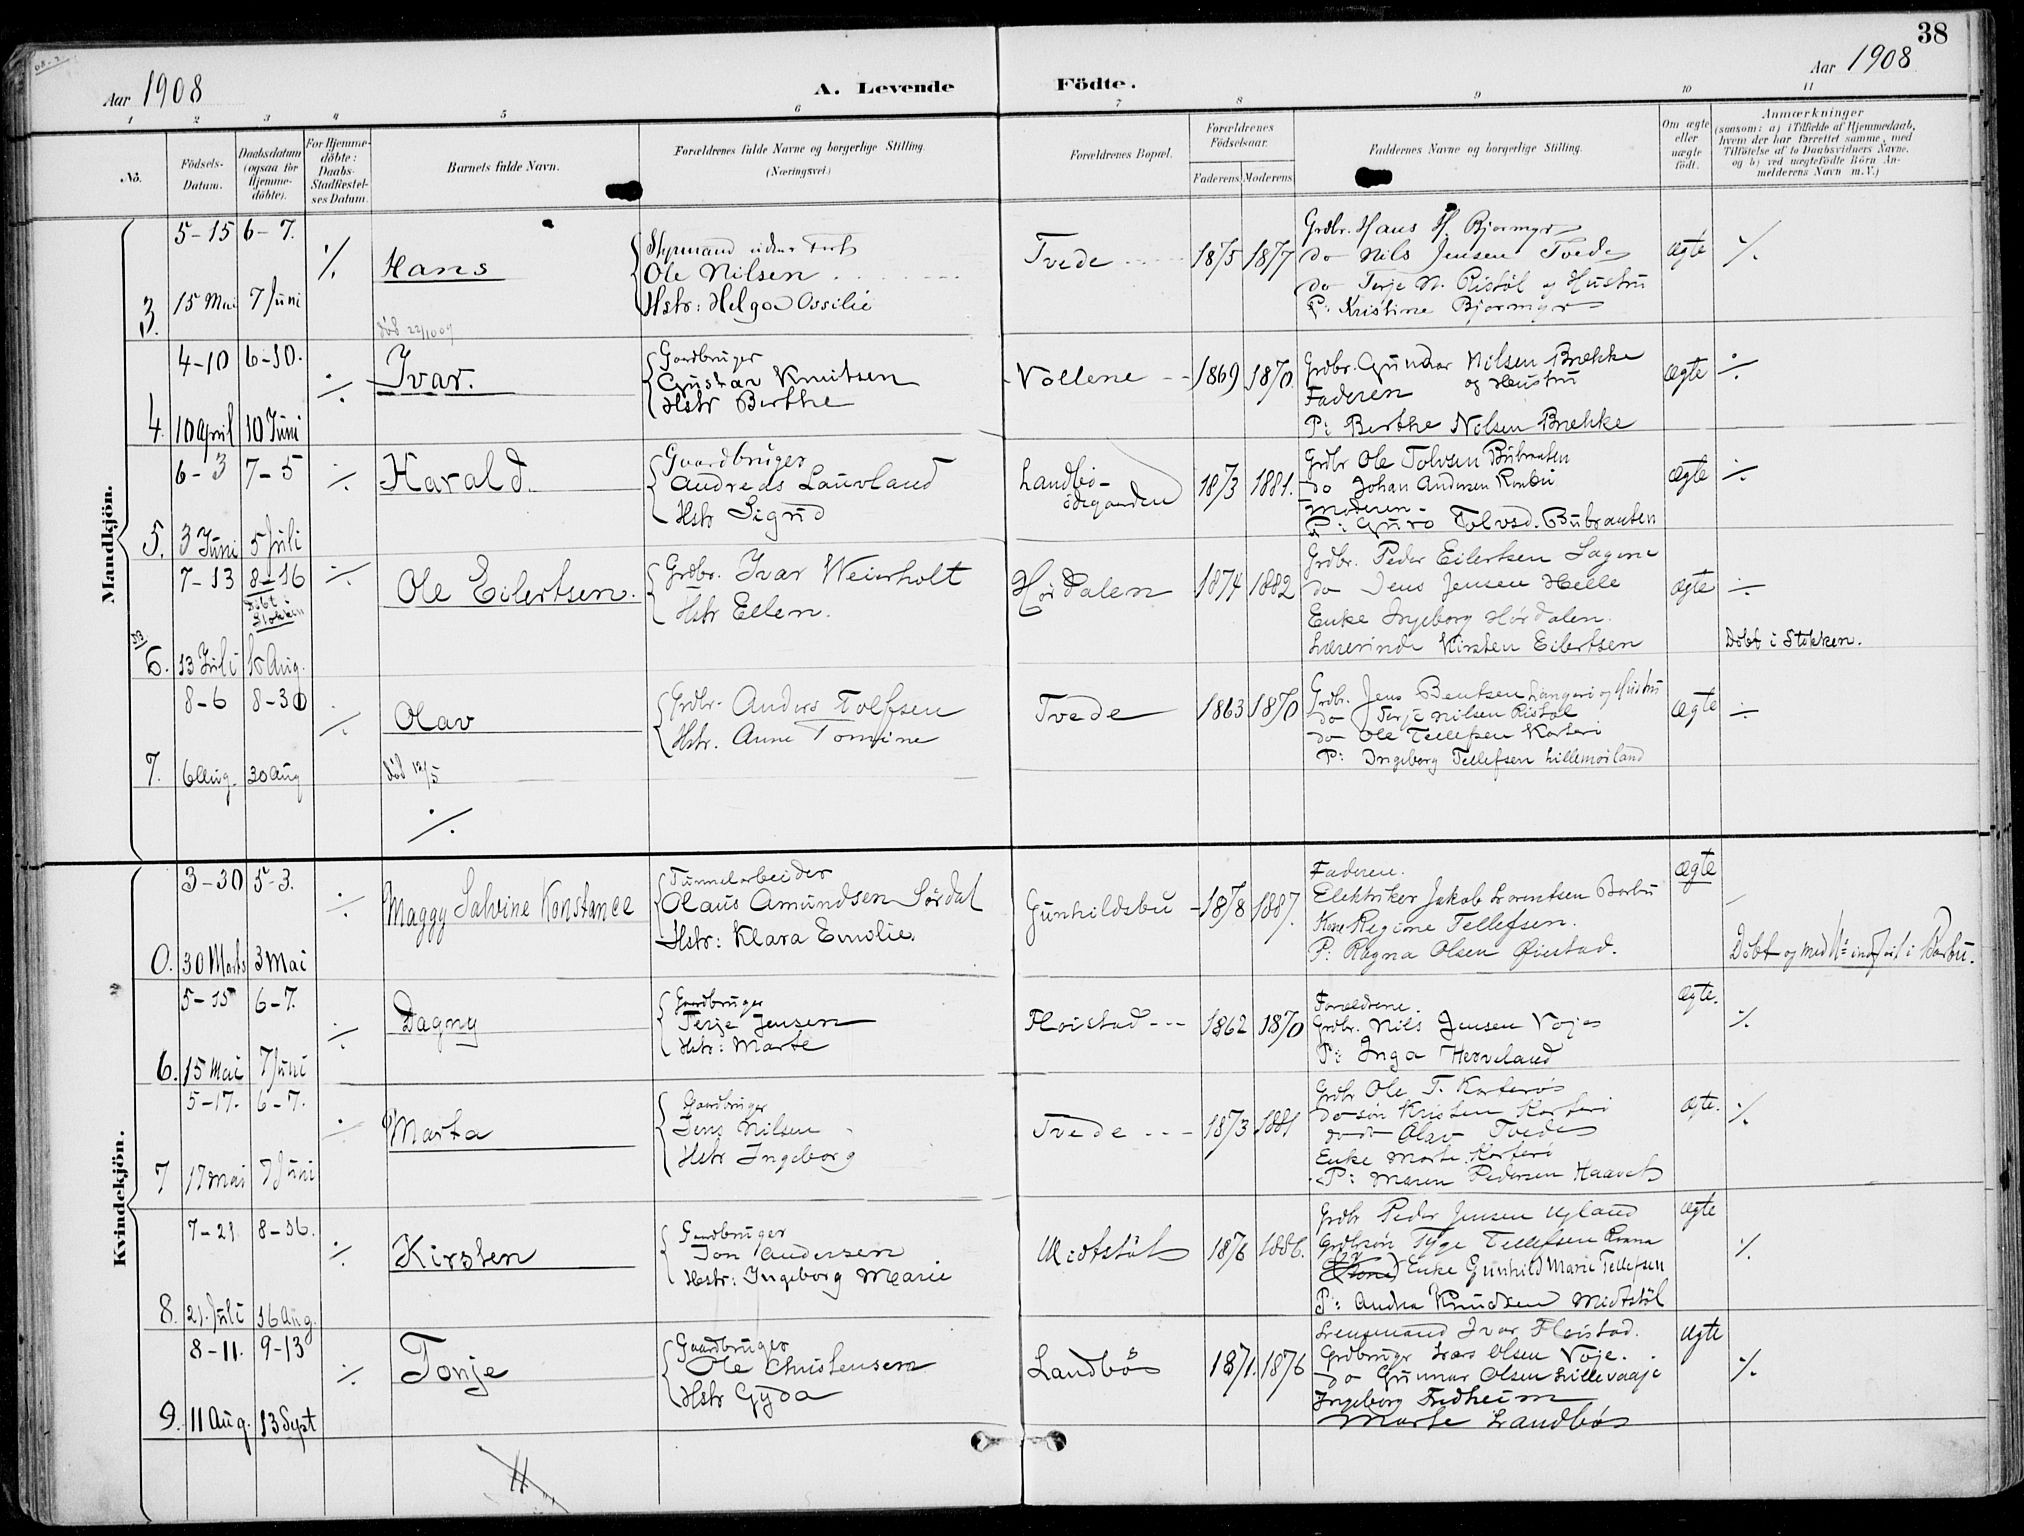 38
Aar 1908
A. Levende Födte.
Aar 1908
1 2 3 4 5 6 7 8 9 10 11
No.
Födsels-Datum.
Daabsdatum (ogsaa for Hjemme-döbte).
For Hjemme-döbte: Daabs-Stadfæstel-ses Datum.
Barnets fulde Navn.
Forældrenes fulde Navne og borgerlige Stilling.
(Næringsvei.)
Forældrenes Bopæl.
Forældrenes Födselsaar.
Faderens. Moderens.
Faddernes Navne og borgerlige Stilling.
Om ægte eller uægte födt.
Anmærkninger
(saasom: a) i Tilfælde af Hjemmedaab, hvem der har forrettet samme, med Tilföielse af to Daabsvidners Navne, og b) ved uægtefödte Börn An-melderens Navn m.V.)
Mandkjön.
3. 5-15 6-7.
15 Mai 7 Juni
Hans
Styrmand
Ole Nilsen
Hstr: Helga Ossilie
Tvede
1875 1877
Grdbr. Hans H. Bjormyr
do Nils Jensen Tvede
do Terje N. Ristøl og Hustru
P: Kristine Bjormyr
ægte
død 22/10 09
4. 4-10 6-10.
10 April 10 Juni
Ivar.
Gaardbruger
Gustav Knutsen
Hstr Berthe
Vollene
1869 1870
Grdbr. Gunnar Nilsen Brekke
og Hustru
Faderen
P: Berthe Nilsen Brekke
ægte
5. 6-3 7-5
3 Juni 5 Juli
Harald.
Gaardbruger
Andreas Lauvland
Hstr Sigrid
Landbø-
ødegaarden
1873 1881.
Grdbr Ole Tolvsen Bubraaten
do Johan Andersen
Moderen
P: Guro Tolvsd. Bubraaten
ægte
6. 7-13 8-16
Døbt i Stokken
13 Juli 16 Aug.
Ole Eilertsen.
Grdbr. Ivar Weierholt
Hstr Ellen.
Hørdalen
1874 1882
Grdbr. Peder Eilertsen Sagene
do Jens Jensen Helle
Enke Ingeborg Hørdalen.
Lærerinde Kirsten Eilertsen
ægte
Døbt i Stokken.
7. 8-6 8-30
6 Aug. 30 Aug
Olav
død 12/5
Grdbr. Anders Tolfsen
Hstr. Anne Tomine
Tvede
1863 1870
Grdbr. Jens Bentsen Langeri og Hustru
do Terje Nilsen Ristøl
do Ole Tellefsen Karteri
P: Ingeborg Tellefsen Lillemørland
ægte
Kvindekjön.
0. 3-30 5-3.
30 Marts 3 Mai
Maggy Salvine Konstance
Tunnelarbeider
Olaus Amundsen Sørdal
Hstr: Klara Emolie.
Gunhildsbu
1878 1887.
Faderen.
Elektriker Jakob Lorentsen Barbu
Kone Regine Tellefsen.
P: Ragna Olsen Øiestad.
ægte
Døbt og med No indført i Barbu.
6. 5-15 6-7.
15 Mai 7 Juni
Dagny
Gaardbruger
Terje Jensen
Hstr: Marte
Fløistad
1862 1870
Forældrene.
Grdbr. Nils Jensen Voje
P: Inga Herveland
ægte.
7 5-17. 6-7.
17 Mai 7 Juni
Marta
Gaardbruger
Jens Nilsen
Hstr Ingeborg
Tvede
1873 1881
Grdbr Ole T. Karterøs
do søn Kristen Karteri
do do Olav Tvede
Enke Marte Karteri
P: Maren Pedersen Haavet
ægte.
8. 7-21. 8-16.
21. Juli 16 Aug.
Kirsten
Gaardbruger
Jon Andersen
Hstr: Ingeborg Marie
Midtstøl
1876 1886.
Grdbr Peder Jensen Ugland
Grdbrsøn Tyge Tellefsen
Enke Gunhild Marie Tellefsen
P: Andrea Knudsen Midtstøl
ægte
9. 8-11. 9-13
11 Aug. 13 Sept
Tonje
Gaardbruger
Ole Christensen
Hstr Gyda
Landbø
1871. 1876
Lensmand Ivar Fløistad.
Grdbruger Lars Olsen Voje.
do Gunnar Olsen Lillevaaje
Ingeborg Fredheim
Marte Landbøs
ægte
11